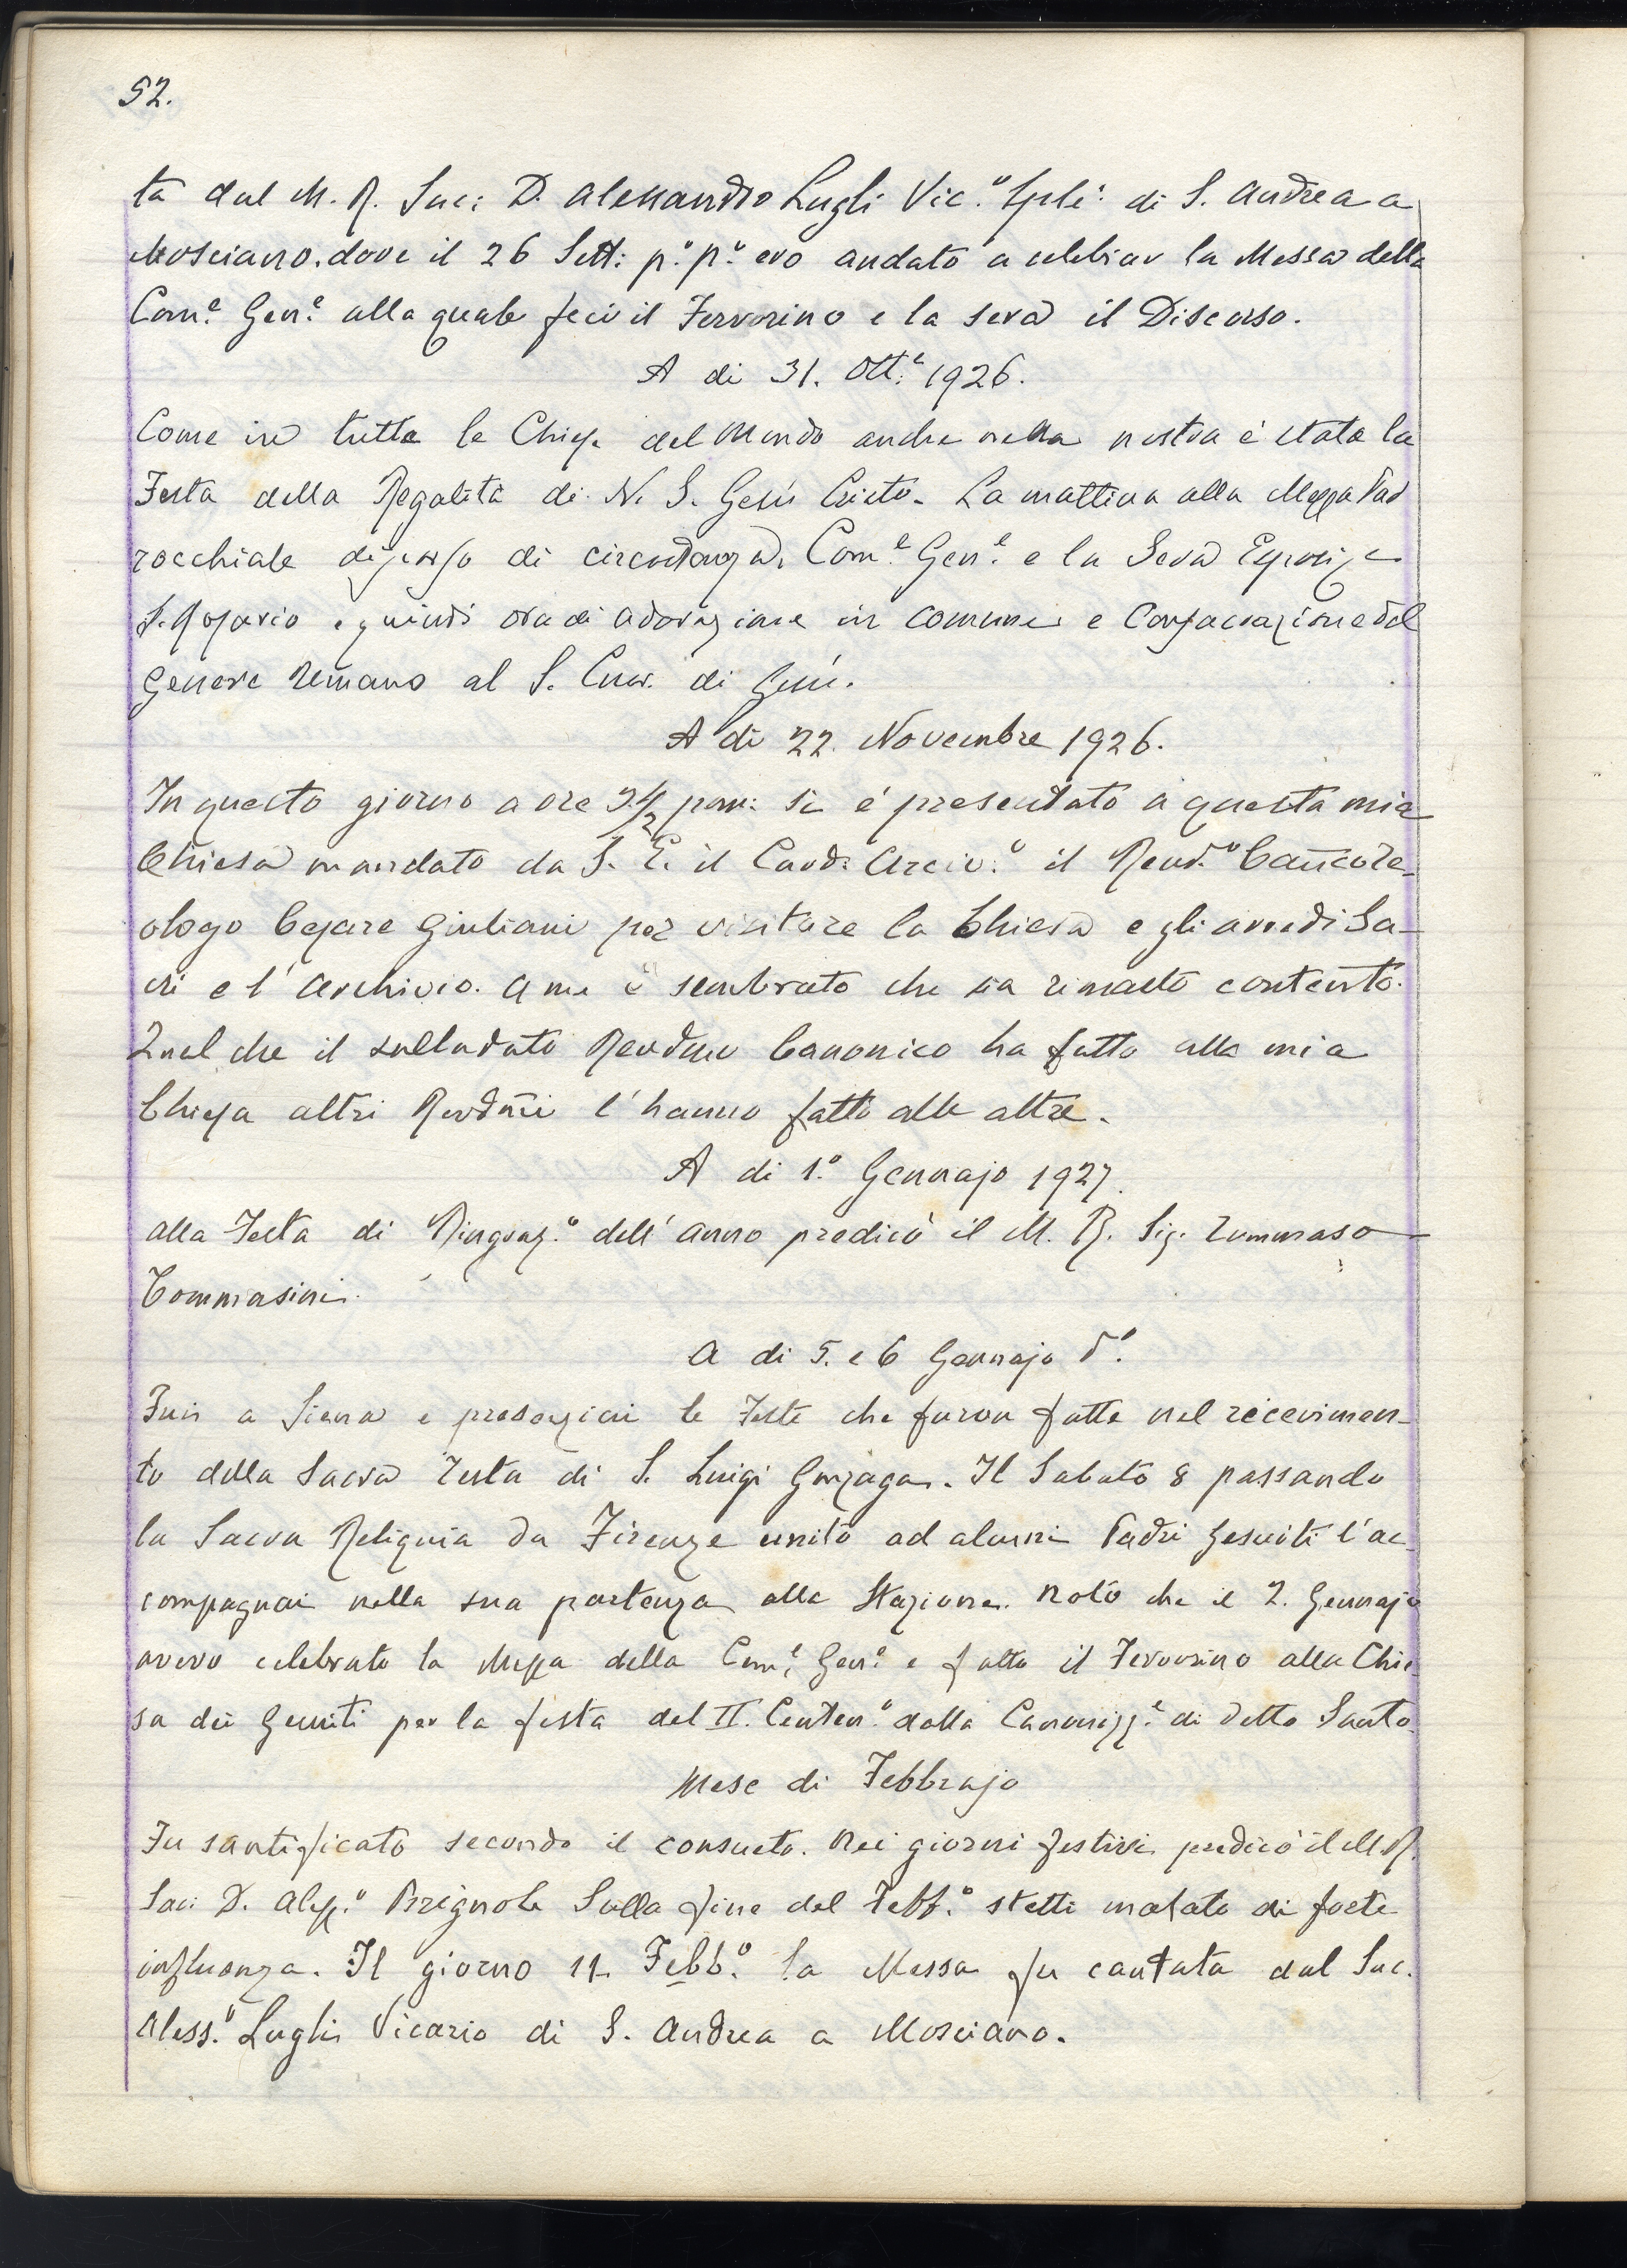 52.
ta dal M. R. Sac: D. Alessandro Lugli Vic.º Sple: di S. Andrea a
Mosciano. dove il 26 Sett: p.º p.º ero andato a celebrar la Messa della
Com.e Gen.e alla quale feci il Fervorino e la sera il Discorso.
A di 31. Ott.e 1926.
Come in tutte le Chiese del Mondo anche nella nostra è stata la
Festa della Regalità di N. S. Gesù Cristo. La mattina alla Messa Par
rocchiale discorso di circostanza, Com.e Gen.e e la Sera Esposiz.e
S. Rosario e quindi ora di adorazione in comune e Consacrazione del
Genere Umano al S. Cuor. di Gesù.
A di 22. Novembre 1926.
In questo giorno a ore 2 1/2 pom: si è presentato a questa mia
Chiesa mandato da S. E. il Card: Arciv.º il Rend.º Canco Te-
ologo Cesare Giuliani per visitare la Chiesa e gli arredi Sa-
cri e l'Archivio. A me è sembrato che sia rimasto contento.
Quel che il sullodato Revdmo Canonico ha fatto alla mia
Chiesa altri Revdmi l'hanno fatto alle altre.
A di 1.º Gennajo 1927.
Alla Festa di Ringraz.º dell'anno predicò il M. R. Sig. Tommaso
Tommasini.
A di 5. e 6 Gennajo d.º
Fui a Siena e presenziai le Feste che furon fatte nel ricevimen-
to della Sacra Testa di S. Luigi Gonzaga. Il Sabato 8 passando
la Sacra Reliquia da Firenze unito ad alcuni Padri Gesuiti l'ac-
compagnai nella sua partenza alla Stazione. Noto che il 2. Gennajo
avevo celebrato la Messa della Com.e Gen.e e fatto il Fervorino alla Chie
sa dei Gesuiti per la festa del II. Centen.º della Canonizz.e di detto Santo.
Mese di Febbrajo
Fu santificato secondo il consueto. Nei giorni festivi predicò il M. R.
Sac: D. Aless.º Brignole Sulla fine del Febb.º stetti malato di forte
influenza. Il giorno 11 Febb.º la Messa fu cantata dal Sac.
Aless.º Lugli Vicario di S. Andrea a Mosciano.